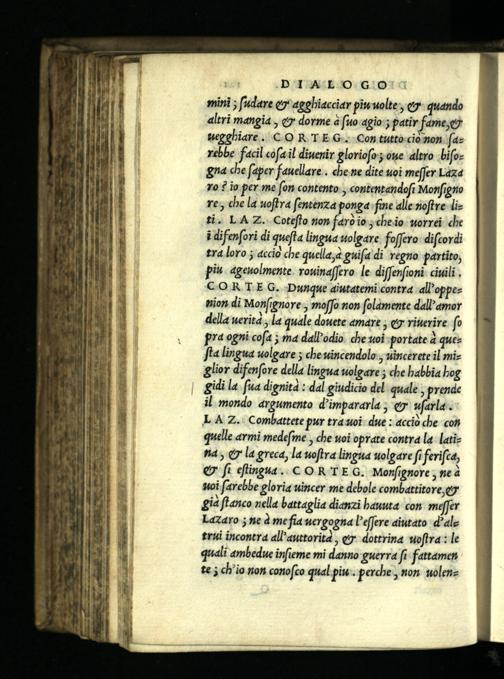 DIALOGO
mini; sudare & agghiacciar piu volte, & quando
altri mangia, & dorme à suo agio; patir fame, &
uegghiare. CORTEG. Con tutto ciò non sa=
rebbe facil cosa il diuenir glorioso; oue altro biso=
gna che saper fauellare. che ne dite uoi messer Laza
ro? io per me son contento, contentandosi Monsigno
re, che la uostra sentenza ponga fine alle nostre li=
ti. LAZ. Cotesto non farò io, che io uorrei che
i difensori di questa lingua uolgare fossero discordi
tra loro; acciò che quella, à guisa di regno partito,
piu ageuolmente rouinassero le dissensioni ciuili.
CORTEG. Dunque aiutatemi contra all'oppe=
nion di Monsignore, mosso non solamente dall'amor
della uerità, la quale douete amare, & riuerire so
pra ogni cosa; ma dall'odio che uoi portate à que=
sta lingua uolgare; che uincendolo, uincerete il mi=
glior difensore della lingua uolgare; che habbia hog
gidi la sua dignità: dal giudicio del quale, prende
il mondo argumento d'impararla, & usarla.
LAZ. Combattete pur tra uoi due: acciò che con
quelle armi medesme, che uoi oprate contra la lati=
na, & la greca, la uostra lingua uolgare si ferisca,
& si estingua. CORTEG. Monsignore, ne à
uoi sarebbe gloria uincer me debole combattitore, &
già stanco nella battaglia dianzi hauuta con messer
Lazaro; ne à me fia uergogna l'essere aiutato d'al=
trui incontra all'auttorità, & dottrina uostra: le
quali ambedue insieme mi danno guerra si fattamen
te; ch'io non conosco qual piu. perche, non uolen=